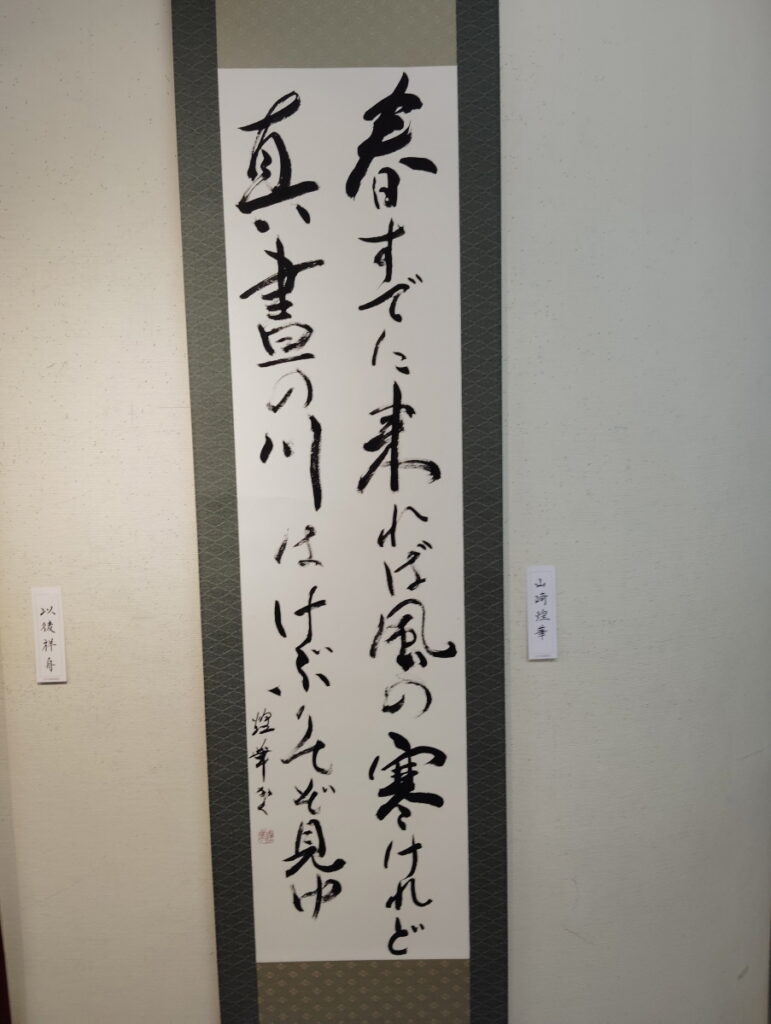 春すでに来れば風の寒けれど
真晝の川はけぶりてぞ見ゆ
煌華かく
山崎煌華
以後祥舟